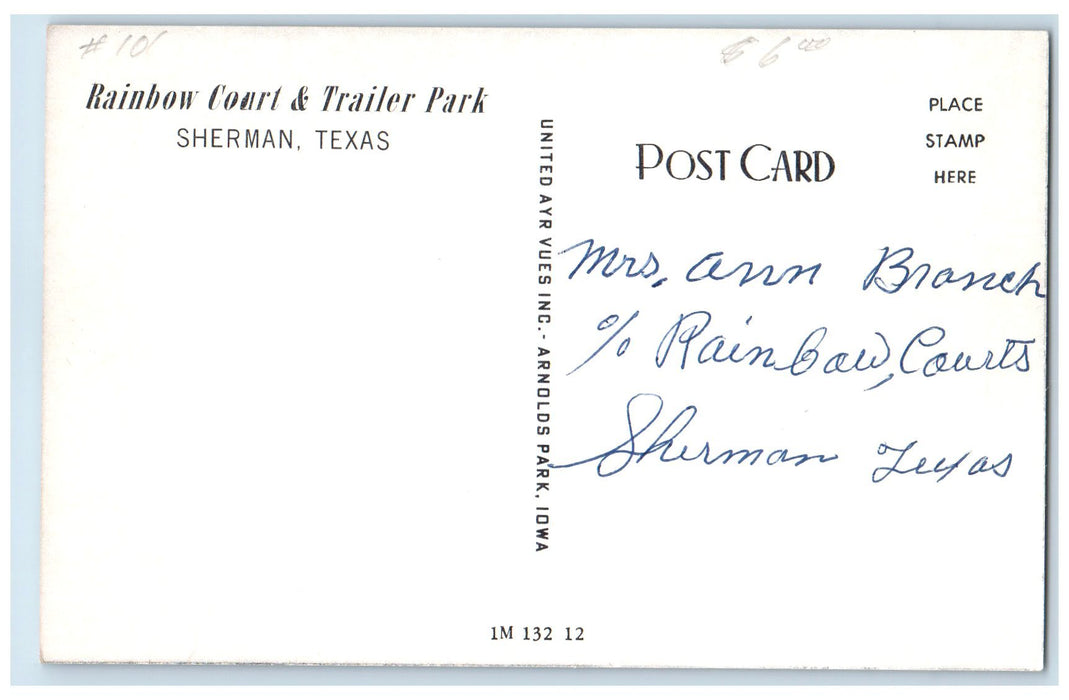 # 10
$ 6.00
Rainbow Court & Trailer Park
SHERMAN, TEXAS
UNITED AYR VUES INC. - ARNOLDS PARK, IOWA
POST CARD
PLACE
STAMP
HERE
Mrs. Ann Branch
% Rainbow, Courts
Sherman Texas
1M 132 12